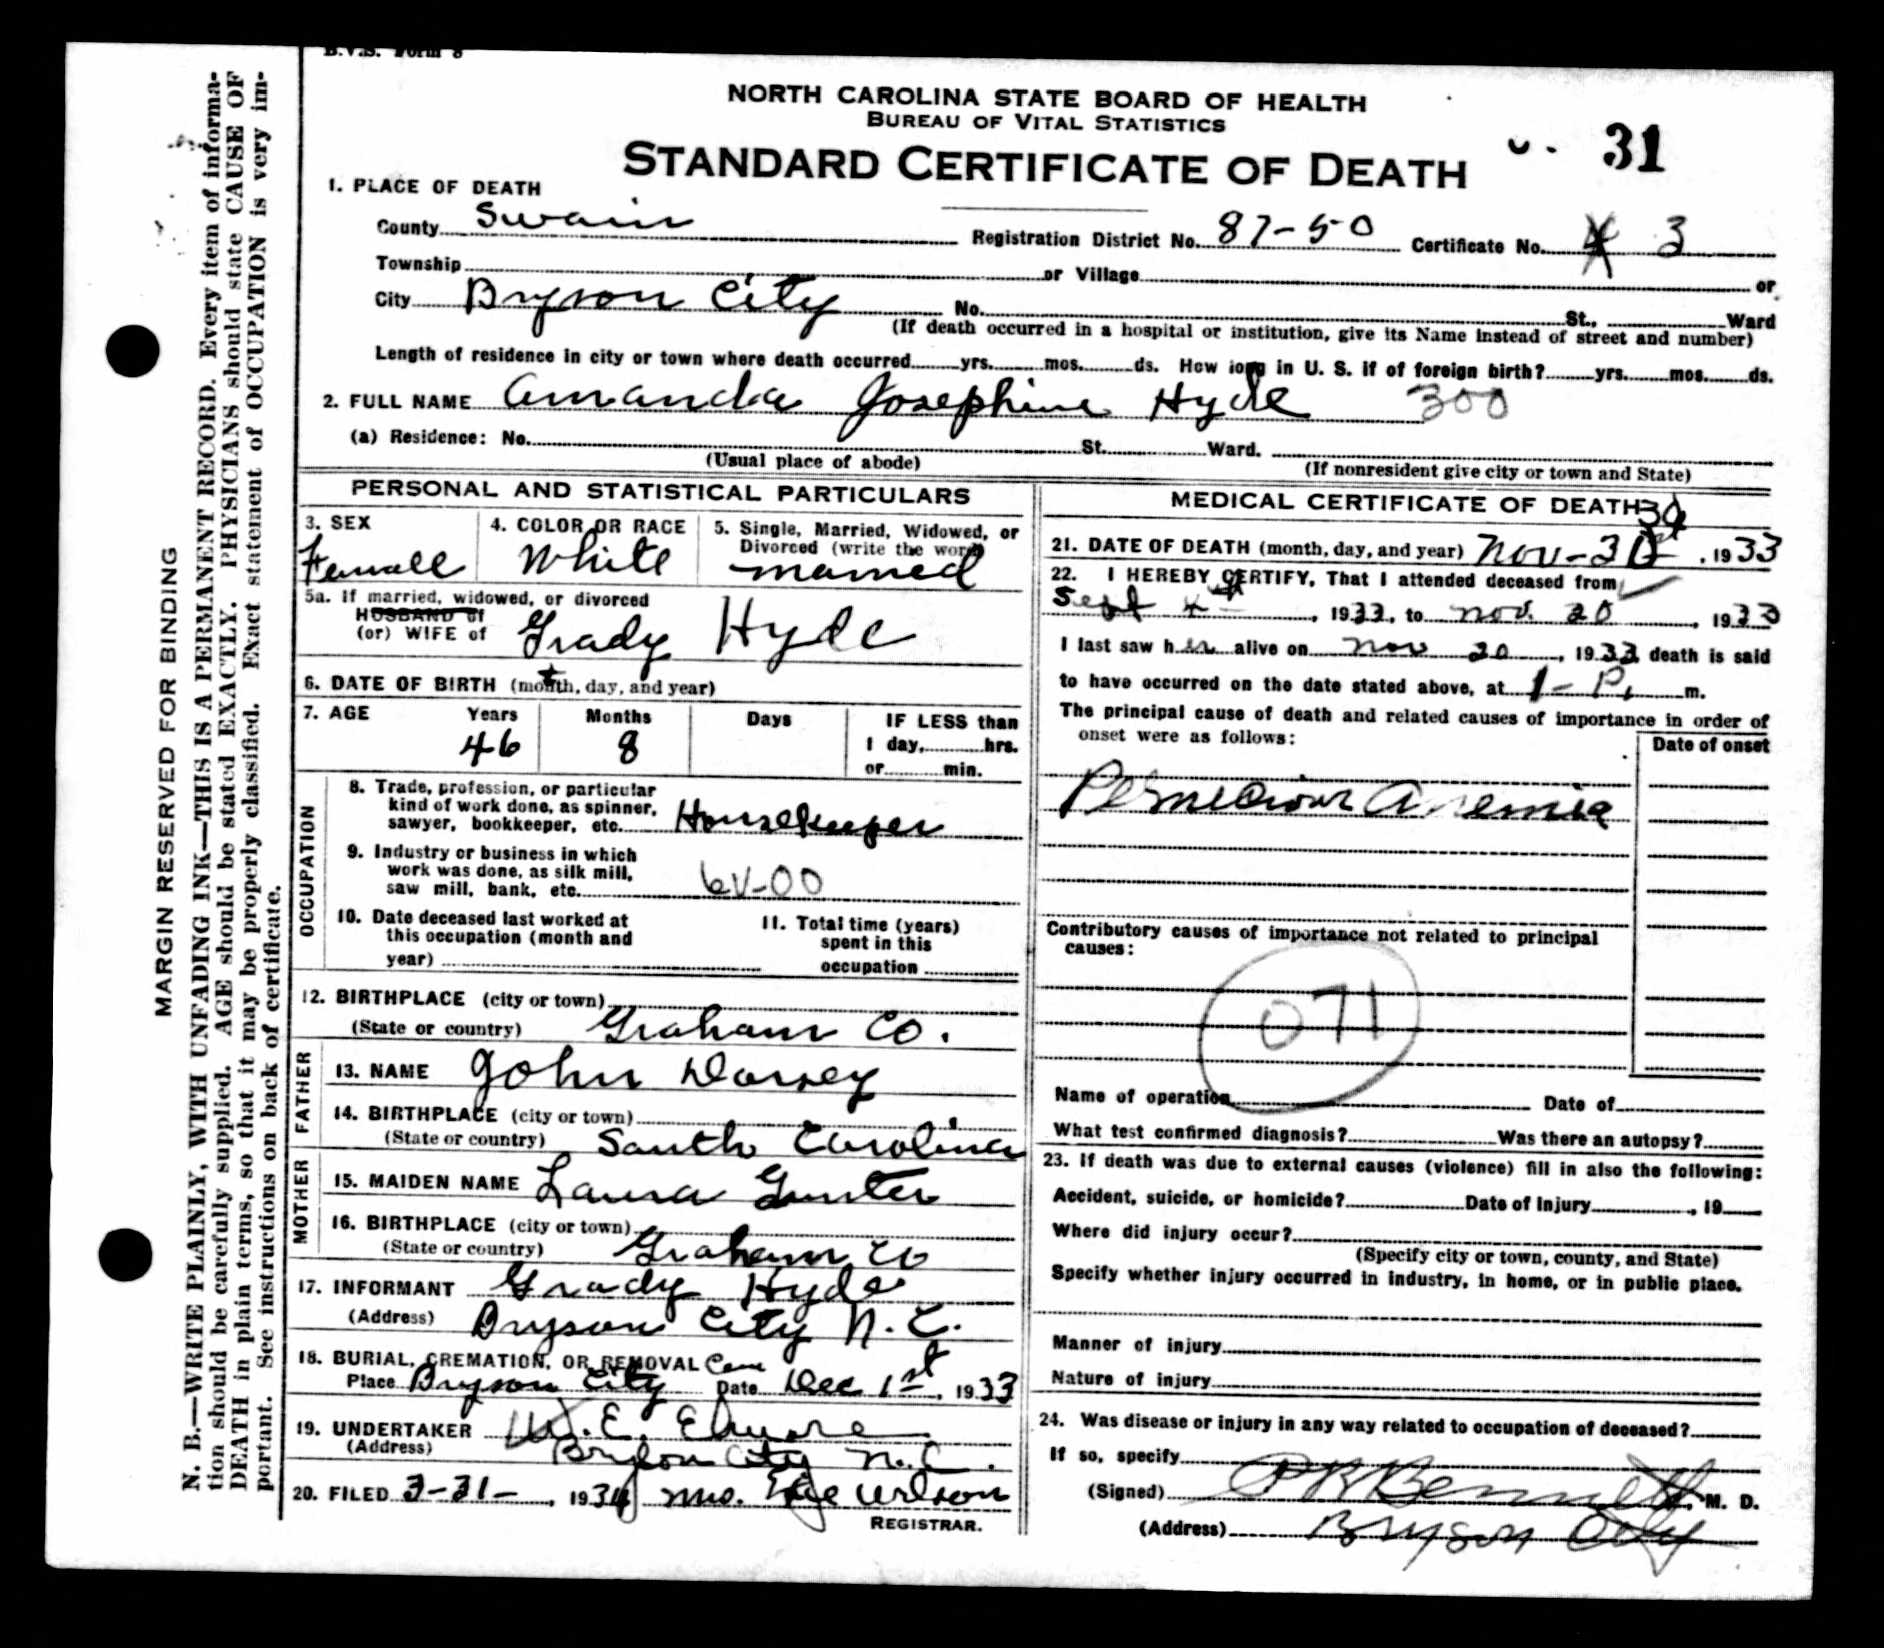 B.V.S. Form 8
NORTH CAROLINA STATE BOARD OF HEALTH
BUREAU OF VITAL STATISTICS
STANDARD CERTIFICATE OF DEATH
31
1. PLACE OF DEATH
County Swain Registration District No. 87-50 Certificate No. 4 3
Township or Village or
City Bryson City No. St., Ward
(If death occurred in a hospital or institution, give its Name instead of street and number)
Length of residence in city or town where death occurred yrs. mos. ds. How long in U. S. if of foreign birth? yrs. mos. ds.
2. FULL NAME Amanda Josephine Hyde 300
(a) Residence: No. St. Ward.
(Usual place of abode) (If nonresident give city or town and State)
PERSONAL AND STATISTICAL PARTICULARS
3. SEX 4. COLOR OR RACE 5. Single, Married, Widowed, or
Divorced (write the word)
Female White married
5a. If married, widowed, or divorced
HUSBAND of
(or) WIFE of Grady Hyde
6. DATE OF BIRTH (month, day, and year)
7. AGE Years Months Days IF LESS than
46 8 1 day, hrs.
or min.
OCCUPATION
8. Trade, profession, or particular
kind of work done, as spinner,
sawyer, bookkeeper, etc. Housekeeper
9. Industry or business in which
work was done, as silk mill,
saw mill, bank, etc. 6V-00
10. Date deceased last worked at 11. Total time (years)
this occupation (month and spent in this
year) occupation
12. BIRTHPLACE (city or town)
(State or country) Graham Co.
FATHER
13. NAME John Dorsey
14. BIRTHPLACE (city or town)
(State or country) South Carolina
MOTHER
15. MAIDEN NAME Laura Gunter
16. BIRTHPLACE (city or town)
(State or country) Graham Co
17. INFORMANT Grady Hyde
(Address) Bryson City N. C.
18. BURIAL, CREMATION, OR REMOVAL Cem
Place Bryson City Date Dec 1st, 1933
19. UNDERTAKER W. E. Elmore
(Address) Bryson City N. C.
20. FILED 3-31-, 1934 Mrs. Wilson
REGISTRAR.
MEDICAL CERTIFICATE OF DEATH
30
21. DATE OF DEATH (month, day, and year) Nov-31st, 1933
22. I HEREBY CERTIFY, That I attended deceased from
Sept 4th, 1933, to Nov. 20, 1933
I last saw her alive on Nov 20, 1933 death is said
to have occurred on the date stated above, at 1-P. m.
The principal cause of death and related causes of importance in order of
onset were as follows:
Date of onset
Pernecious Anemia
Contributory causes of importance not related to principal
causes:
071
Name of operation Date of
What test confirmed diagnosis? Was there an autopsy?
23. If death was due to external causes (violence) fill in also the following:
Accident, suicide, or homicide? Date of Injury, 19
Where did injury occur?
(Specify city or town, county, and State)
Specify whether injury occurred in industry, in home, or in public place.
Manner of injury
Nature of injury
24. Was disease or injury in any way related to occupation of deceased?
If so, specify
(Signed) P R Bennett, M. D.
(Address) Bryson City
MARGIN RESERVED FOR BINDING
N. B.—WRITE PLAINLY, WITH UNFADING INK—THIS IS A PERMANENT RECORD. Every item of informa-
tion should be carefully supplied. AGE should be stated EXACTLY. PHYSICIANS should state CAUSE OF
DEATH in plain terms, so that it may be properly classified. Exact statement of OCCUPATION is very im-
portant. See instructions on back of certificate.